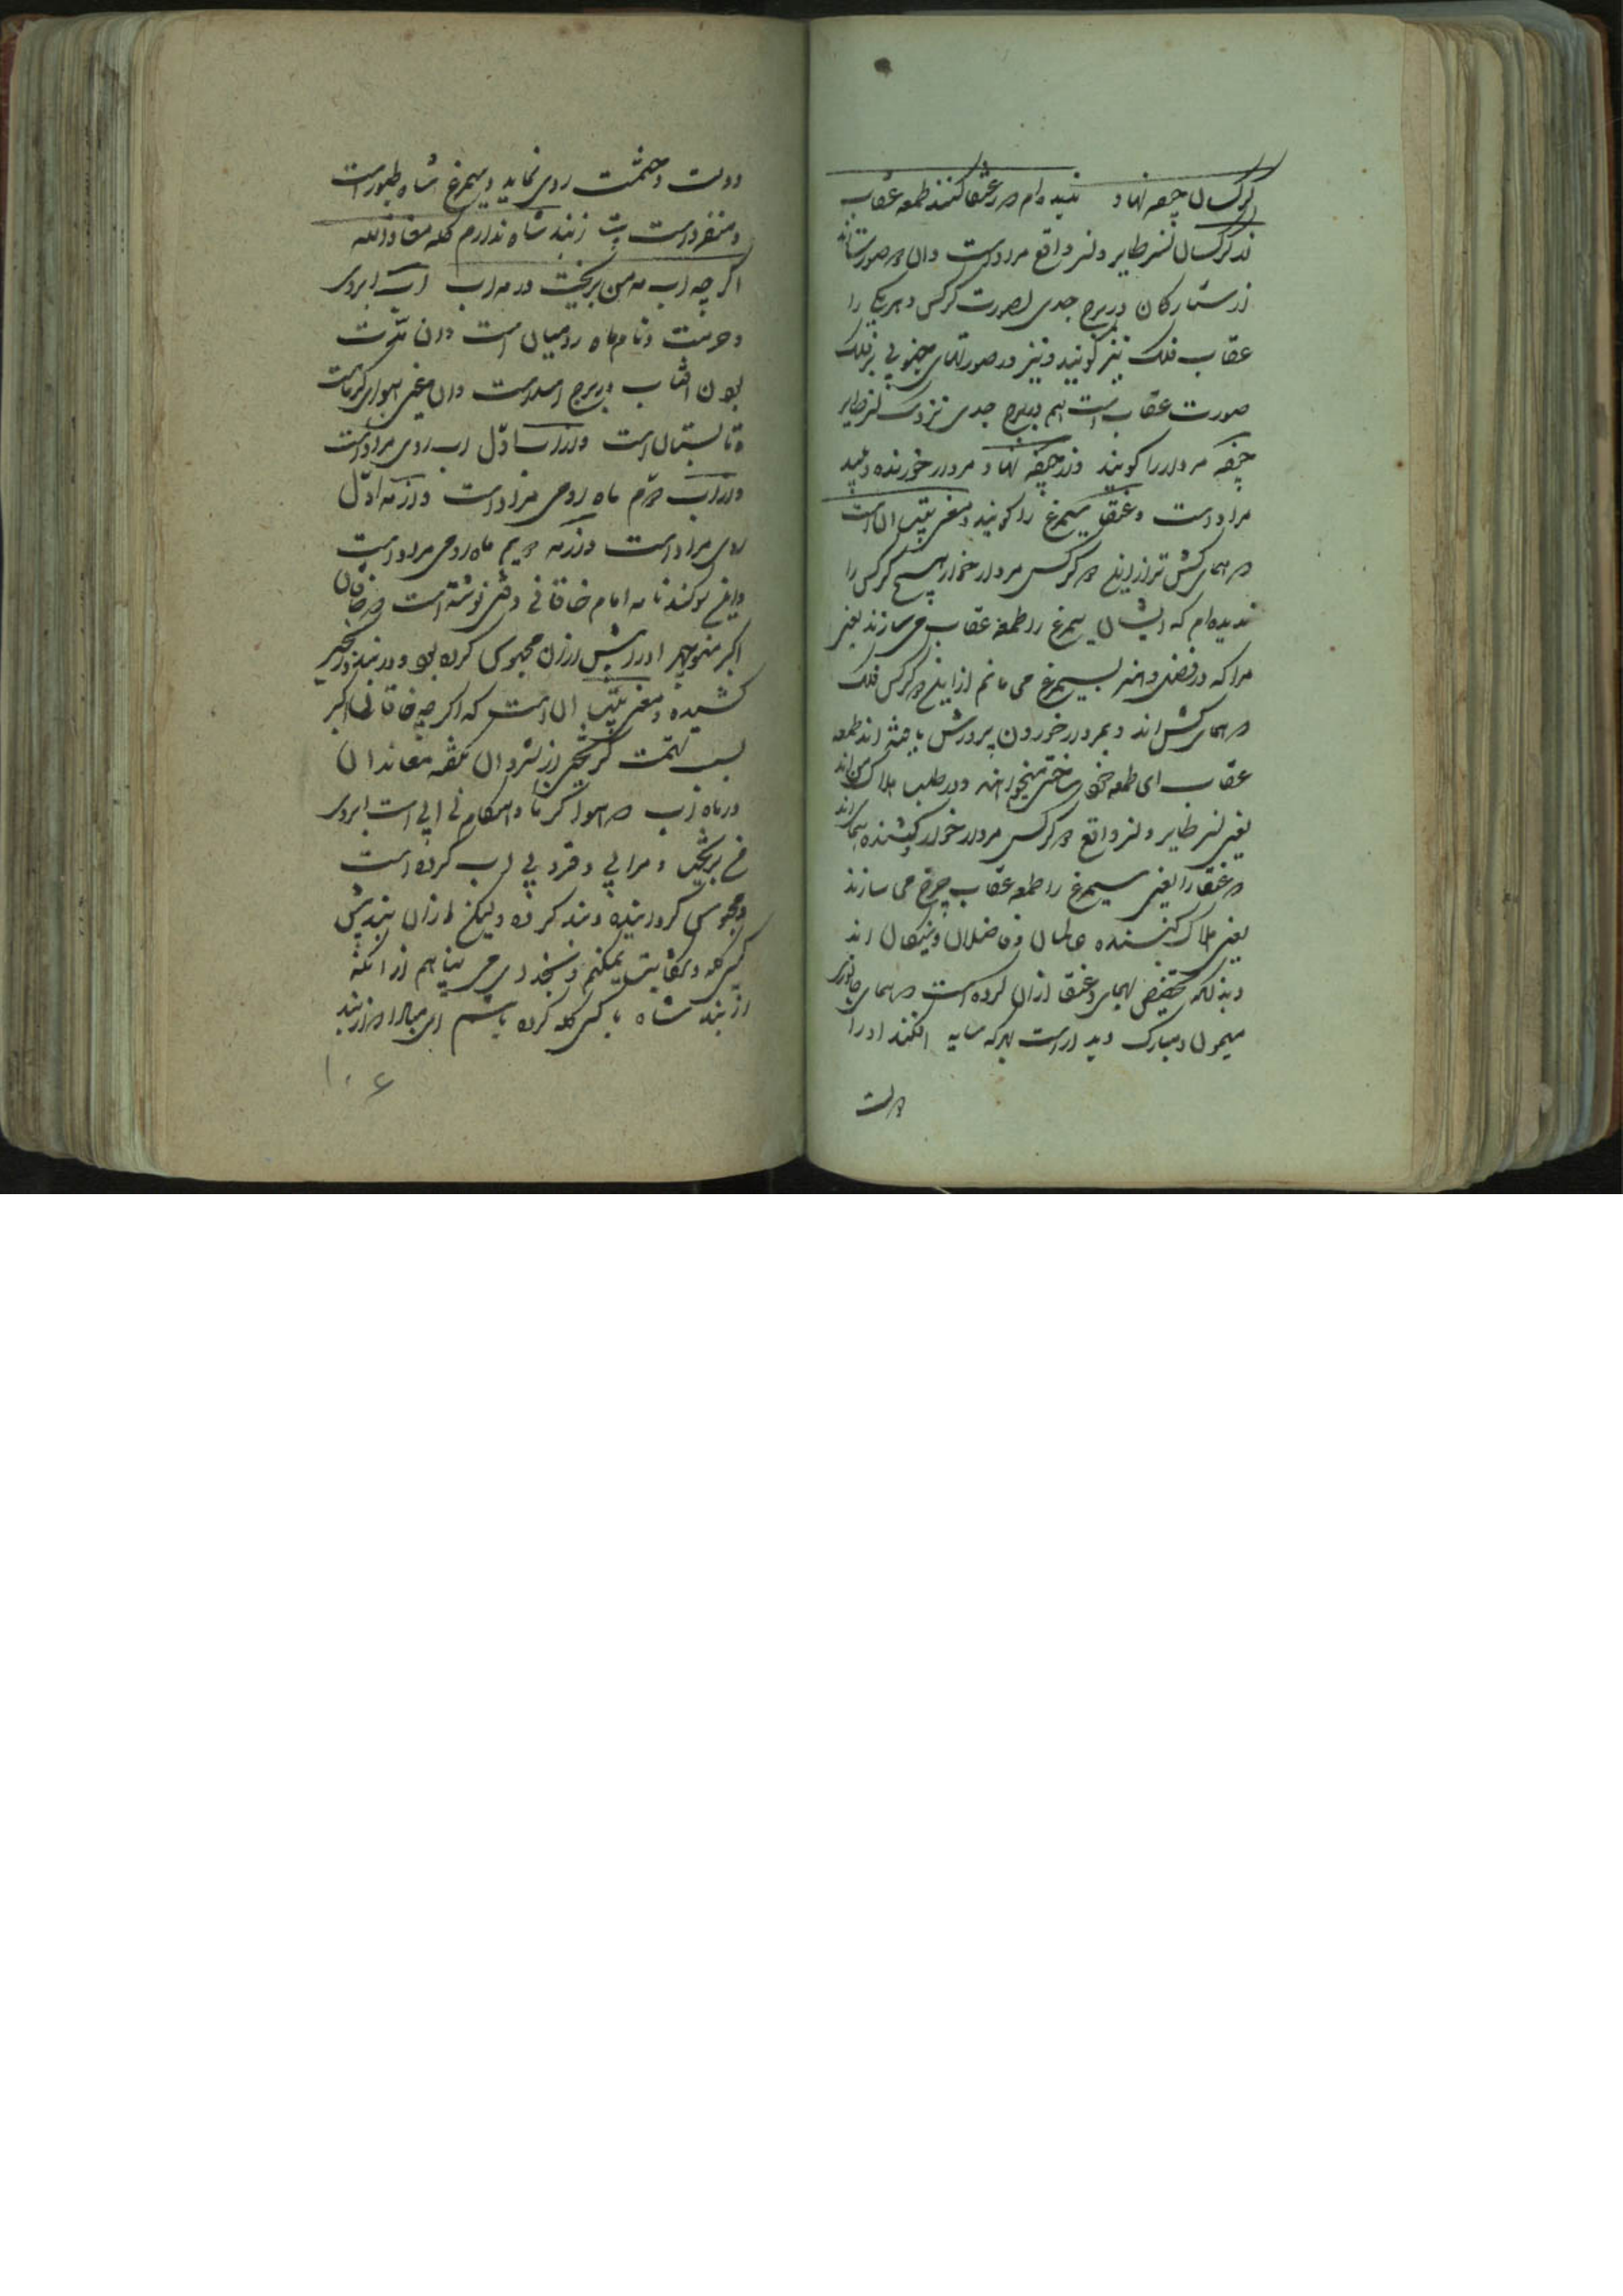 کرکسان جیفه نهاد ندیده‌ام در عنقا کنند طعمه عقاب
از کرکسان نسر طایر و نسر واقع مراد است و آن دو صورت‌اند
از ستارگان در برج جدی بصورت کرکس و هر یکی را
عقاب فلک نیز گویند و نیز در صورتهای جنوبی بر فلک
صورت عقاب است هم در برج جدی نزدیک نسر طایر
جیفه مردار را گویند و از جیفه نهاد مردار خورنده و پلید
مراد است و عنقا سیمرغ را گویند و معنی بیت آن است
دو همای کش تر ازین دو کرکس مردار خوار هیچ کرکس را
ندیده‌ام که ایشان سیمرغ را طعمه عقاب می سازند یعنی
مرا که در فضل و هنر بسیمرغ می مانم ازین دو کرکس فلک
دو همای کش‌اند و بمردار خوردن پرورش یافته‌اند طعمه
عقاب ای طعمه خود ساختن میخواهند و در طلب هلاک من‌اند
یعنی نسر طایر و نسر واقع دو کرکس مردار خوار کشنده همای‌اند
در عنقا را یعنی سیمرغ را طعمه عقاب چرخ می سازند
یعنی هلاک کننده عالمان و فاضلان و نیکان اند
و بدانکه تخصیص بهمای و عنقا از آن کرده است در همای جانوری
میمون و مبارک دیدار است بهر که سایه افکند او را
دولت
دولت و حشمت روی نماید و سیمرغ شاه طیور است
و منفرد است بیت ز بند شاه ندارم گله معاذ الله
اگر چه آب مه من بریخت در مه آب آب آبروی
و حرمت و نام ماه رومیان است و آن مدّت
بودن افتاب در برج اسد است و آن معنی هوای گرماست
تابستان است و از آب اوّل آب روی مراد است
و از آب دوم ماه رومی مراد است و از مه اوّل
روی مراد است و از مه دویم ماه رومی مراد است
و این سوگند نامه امام خاقانی وقتی نوشته است در خاقان
اکبر منوچهر او را بشش ارزن محبوس کرده بود و در بند و زنجیر
کشیده و معنی بیت آن است که اگر چه خاقانی اکبر
بسبب تهمت گریختن از شروان بگفته معاندان
در ماه آب در هوا گرما و هنگام بی آبی است آبروی
من بریخت و مرا بی وقر و بی آب کرده است
و محبوس گردانیده و بند کرده ولیکن از آن بندش
گله و شکایت نمیکنم و بخدای می پناهم از آنکه
از بند شاه با کس گله کرده باشم ای مبادا در از بند
۱۰۶